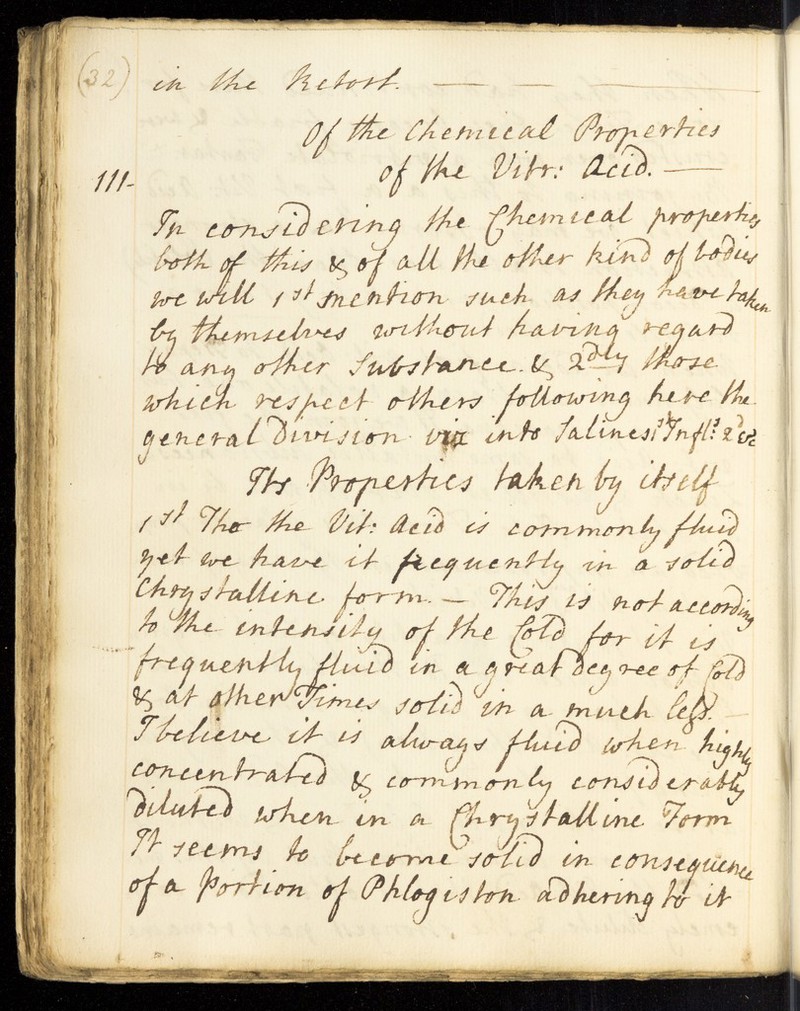 (32)
in the Retort. — — —
Of the Chemical Properties
of the Vitr: Acid. —
111-
In considering the Chemical properties
both of this & of all the other kind of bodies
we will 1st mention such as they have taken
by themselves without having regard
to any other Substance. & 2dly those
which respect others following here the
general Division viz into Salines 1st Infl:s 2d &c
Its Properties taken by itself
1st Tho the Vit: Acid is commonly fluid
yet we have it frequently in a solid
Chrystalline form. — This is not according
to the intensity of the Cold for it is
frequently fluid in a great degree of Cold
& at other Times solid in a much less. —
I believe it is always fluid when highly
concentrated & commonly considerably
diluted when in a Chrystalline Form
It seems to become solid in consequence
of a Portion of Phlogiston adhering to it